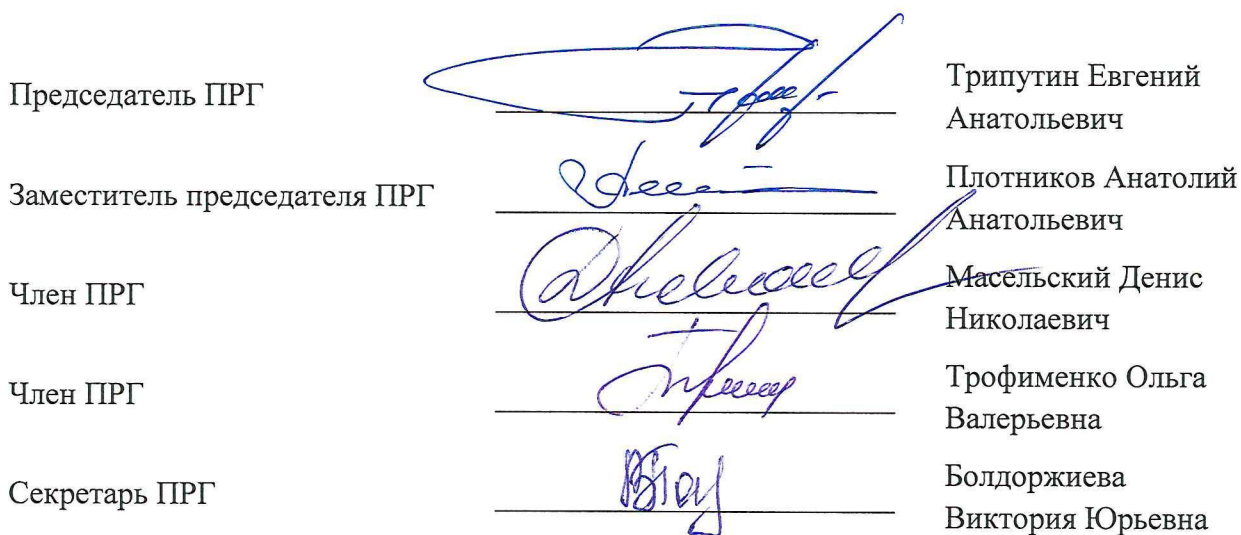 Председатель ПРГ
Трипутин Евгений
Анатольевич
Заместитель председателя ПРГ
Плотников Анатолий
Анатольевич
Член ПРГ
Масельский Денис
Николаевич
Член ПРГ
Трофименко Ольга
Валерьевна
Секретарь ПРГ
Болдоржиева
Виктория Юрьевна